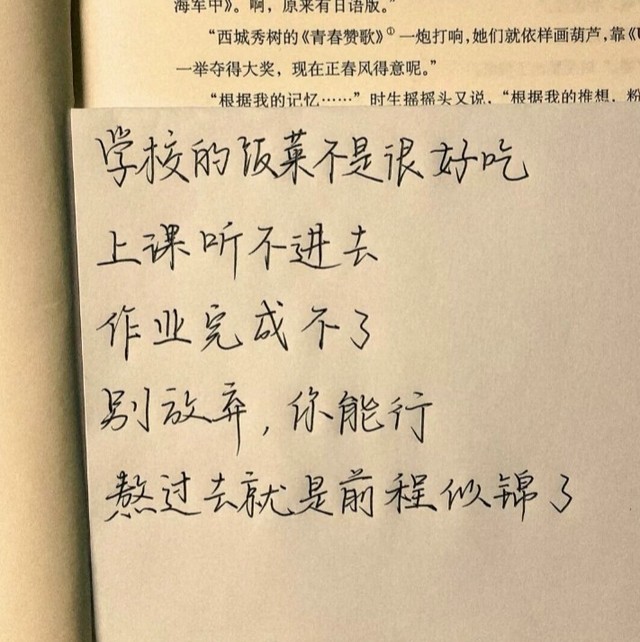 海军中》。啊，原来有日语版。”
“西城秀树的《青春赞歌》①一炮打响，她们就依样画葫芦，靠《U
一举夺得大奖，现在正春风得意呢。”
“根据我的记忆……”时生摇摇头又说，“根据我的推想，粉
学校的饭菜不是很好吃
上课听不进去
作业完成不了
别放弃，你能行
熬过去就是前程似锦了